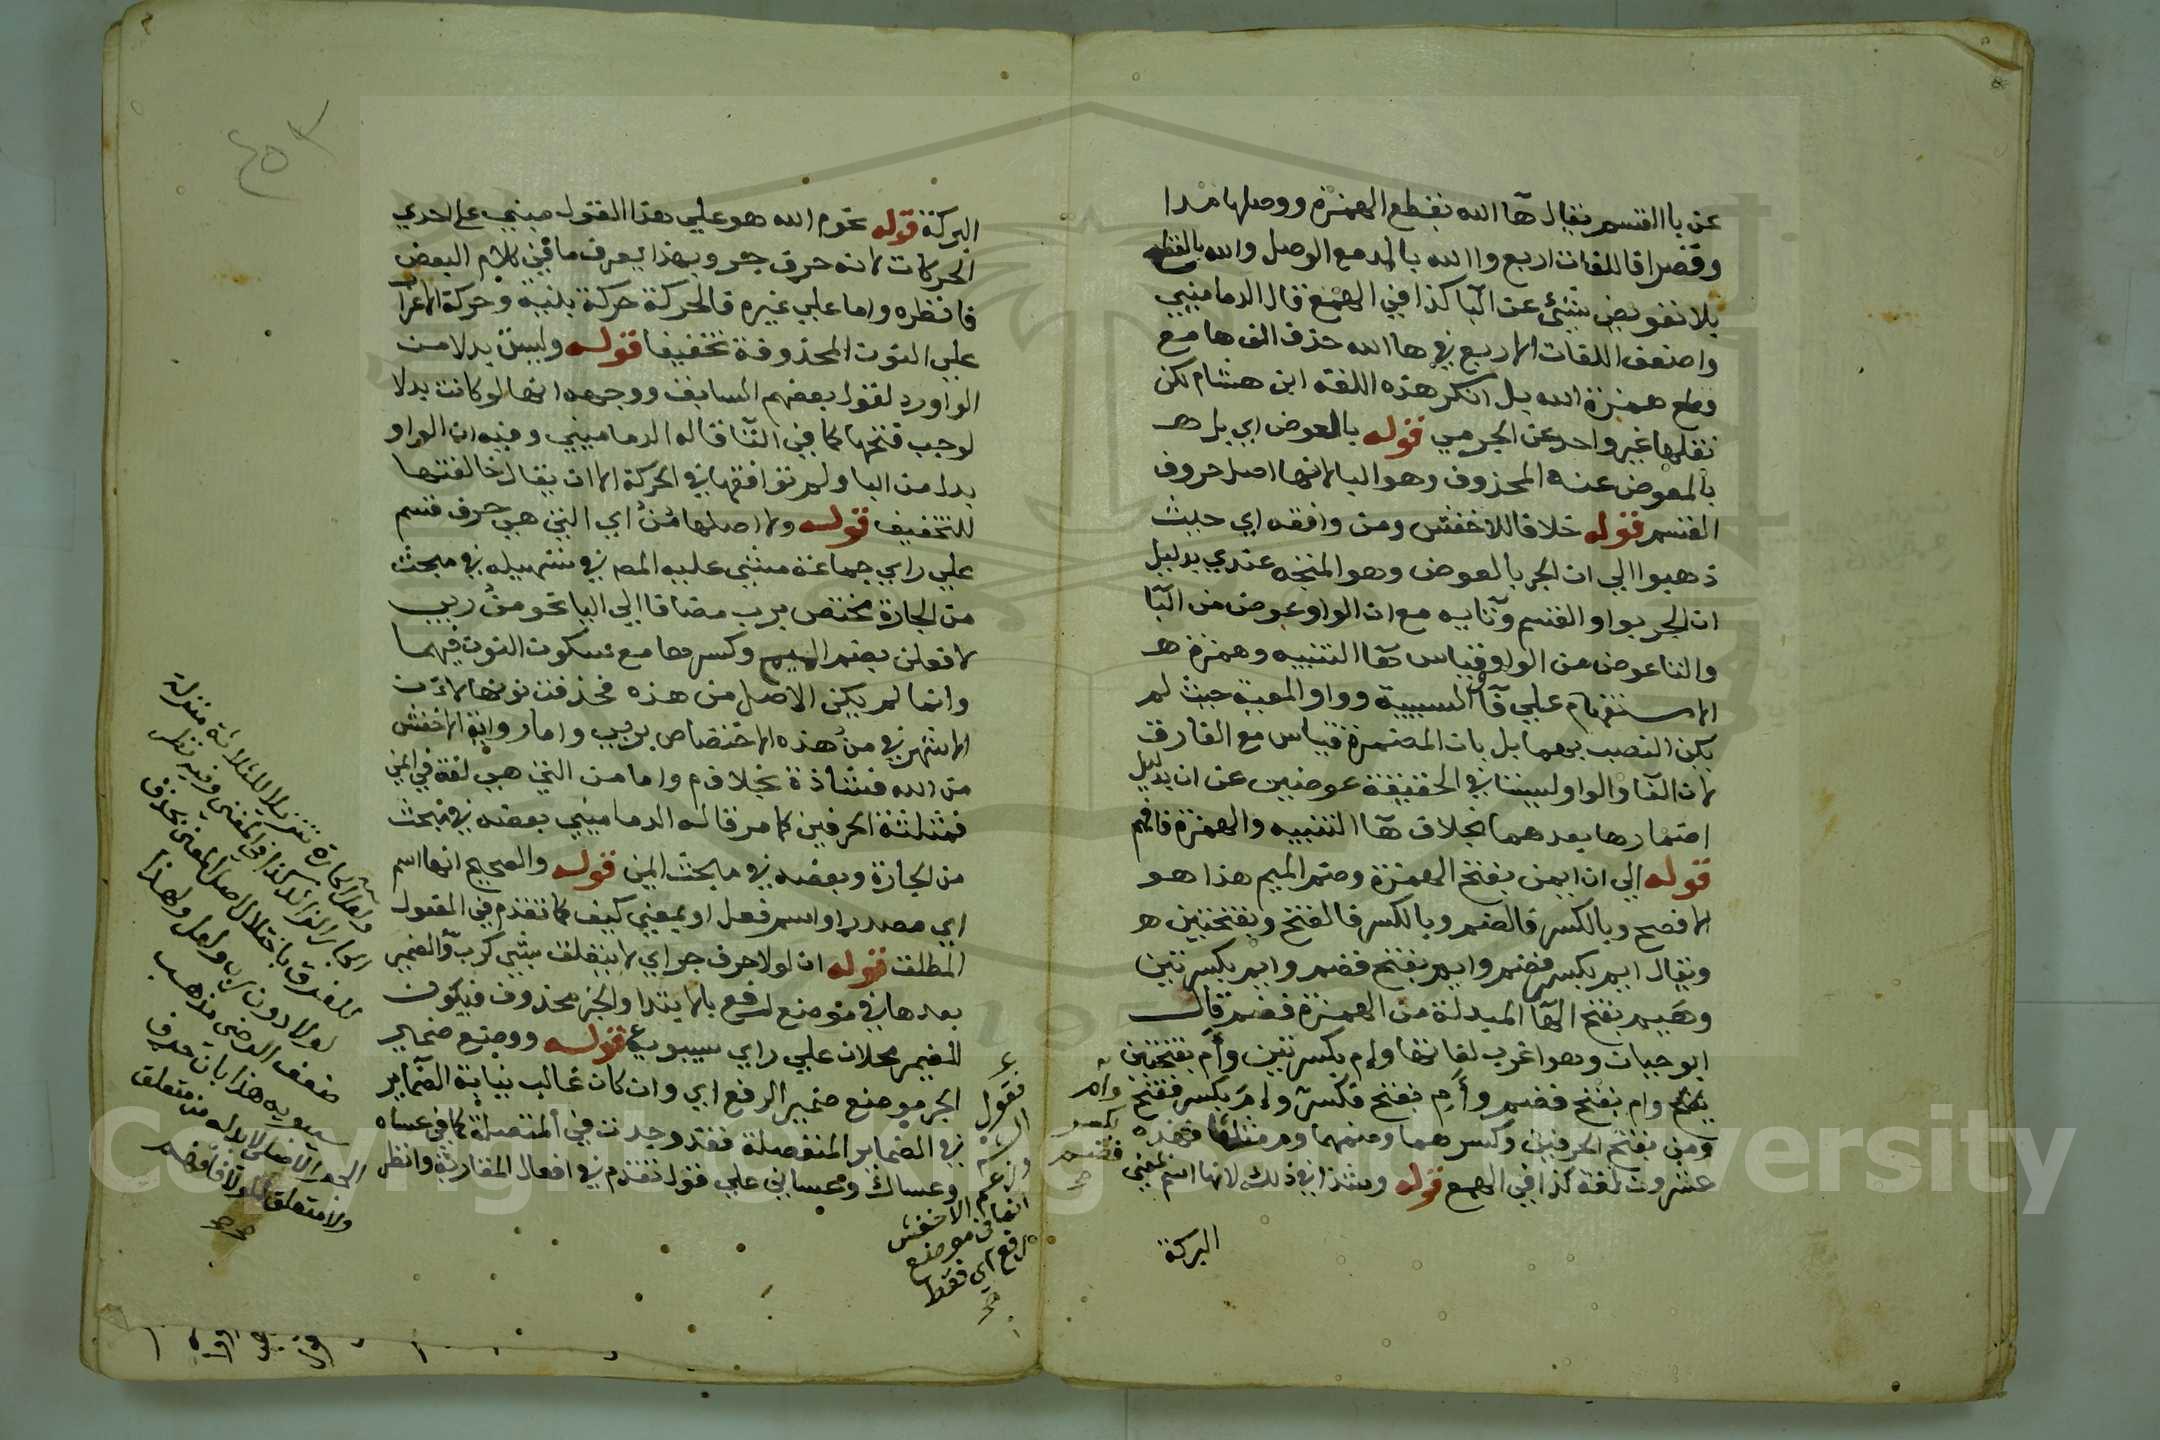 عن با القسم يقال ها الله بقطع الهمزة ووصلها مدا
وقصرا فاللغات اربع واالله بالمد مع الوصل والله بالقطع
بلا تعويض شئ عن البا كذا في الهمع قال الدماميني
واضعف اللغات الاربع في ها الله حذف الف ها مع
قطع همزة الله بل انكر هذه اللغة ابن هشام لكن
نقلها غير واحد عن الجرمي قوله بالعوض اي بل
بالمعوض عنه المحذوف وهو البا لانها اصل حروف
القسم قوله خلافا للاخفش ومن وافقه اي حيث
ذهبوا الي ان الجر بالعوض وهو المتجه عندي بدليل
ان الجر بواو القسم وتايه مع ان الواو عوض من البا
والتا عوض من الواو وقياس ها التنبيه وهمزة
الاستفهام علي فا السببية وواو المعية حيث لم
يكن النصب بهما بل بان المضمرة قياس مع الفارق
لان الفا والواو ليستا في الحقيقة عوضين عن ان بدليل
اضمارها بعدهما بخلاف ها التنبيه والهمزة فافهم
قوله الي ان ايمن بفتح الهمزة وضم الميم هذا هو
الافصح وبالكسر فالضم وبالكسر فالفتح وبفتحتين
ويقال ايم بكسر فضم وايم بفتح فضم وايم بكسرتين
وهيم بفتح الها المبدلة من الهمزة فضم قال
ابو حيان وهو اغرب لغاتها وام بكسرتين وأم بفتحتين
وام بفتح فضم وأم بفتح فكسر وام بكسر ففتح وام
بكسر فضم صح
ومن بفتح الحرفين وكسرهما وضمهما وم مثلثا فهذه
عشرون لغة كذا في الهمع قوله وشذا في ذلك لانها اسم بمعني
البركة
البركة قوله نحو م الله هو علي هذا القول مبني علي احدي
الحركات لانه حرف جر وبهذا يعرف ما في كلام البعض
فانظره واما علي غيره فالحركة حركة بنية وحركة الاعراب
علي النون المحذوفة تخفيفا قوله وليس بدلا من
الواو رد لقول بعضهم السابق ووجهه انها لو كانت بدلا
لوجب فتحها كما في التا قاله الدماميني وفيه ان الواو
بدل من البا ولم توافقها في الحركة الا ان يقال خالفتها
للتخفيف قوله ولا اصلها من اي التي هي حرف قسم
علي راي جماعة مشي عليه المص في تسهيله في مبحث
من الجارة مختص برب مضافا الي اليا نحو من ربي
لافعلن بضم الميم وكسرها مع سكون النون فيهما
وانما لم يكن الاصل من هذه فحذفت نونها لان
الاشهر في من هذه الاختصاص بربي واما رواية الاخفش
من الله فشاذة بخلاف م واما من التي هي لغة في ايمن
فمثلثة الحرفين كما مر قاله الدماميني بعضه في مبحث
من الجارة وبعضه في مبحث ايمن قوله والصحيح انها اسم
اي مصدر او اسم فعل او بمعني كيف كما تقدم في المفعول
المطلق قوله ان لولا حرف جر اي لا يتعلق بشئ كرب والضمير
بعدها في موضع رفع بالابتدا والخبر محذوف فيكون
للضمير محلان علي راي سيبويه قوله ووضع ضمير
الجر موضع ضمير الرفع اي وان كان غالب نيابة الضماير
في الضماير المنفصلة فقد وجدت في المتصلة كما في عساه
وعساك وعساني علي قول تقدم في افعال المقاربة وانظر
قوله
وزعم الاخفش
انها في موضع
رفع اي فقط
صح
ولعل الجارة تنزيلا للثلاثة منزلة
الجار الزائد كذا في المغني وفيه نظر
للفرق باختلال اصل المعني بحذف
لولا دون رب ولعل ولهذا
ضعف الرضي مذهب
سيبويه هذا بان حرف
الجر الاصلي لا بد له من متعلق
ولا متعلق للولا فافهم
صح